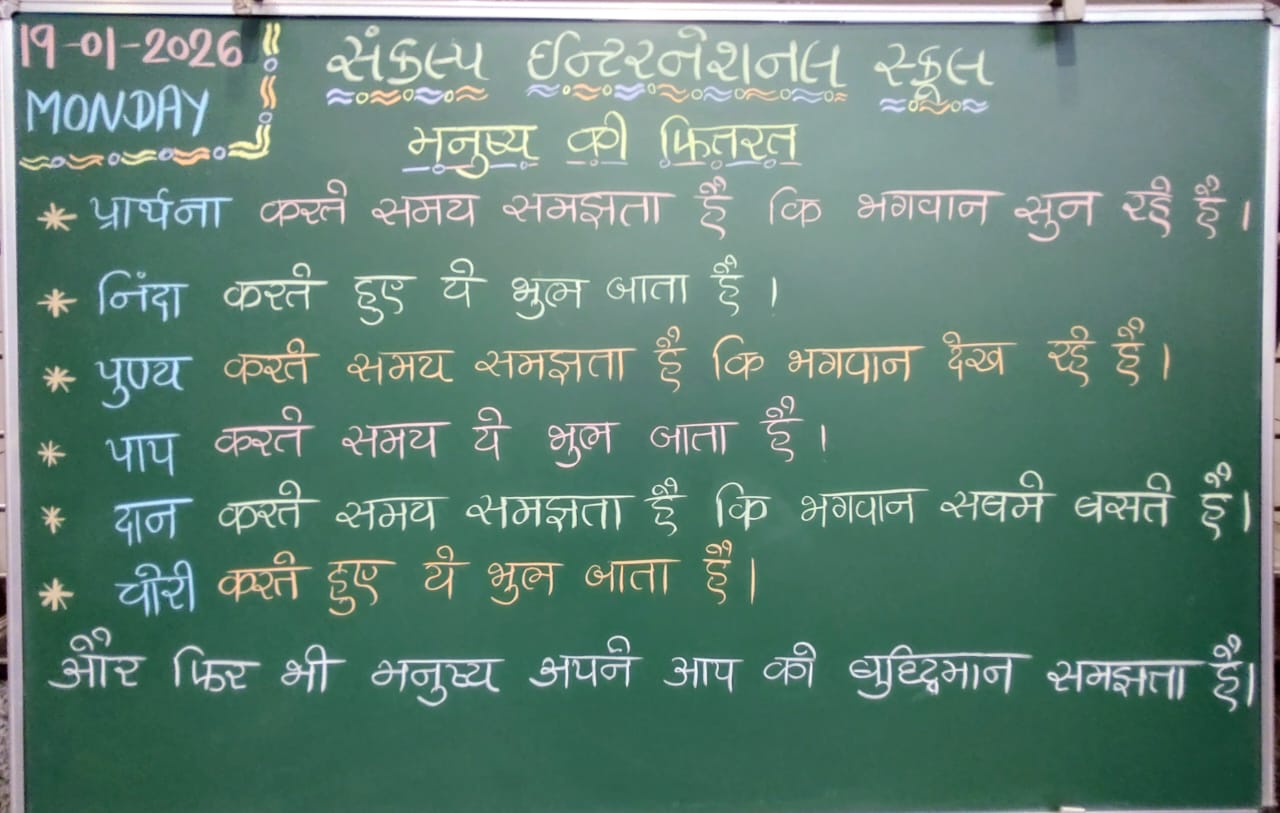 19-01-2026
MONDAY
संकल्प ईन्टरनेशनल स्कूल
मनुष्य की फितरत
* प्रार्थना करते समय समझता है कि भगवान सुन रहे है।
* निंदा करते हुए ये भुल जाता है।
* पुण्य करते समय समझता है कि भगवान देख रहे है।
* पाप करते समय ये भुल जाता है।
* दान करते समय समझता है कि भगवान सबमे बसते है।
* चोरी करते हुए ये भुल जाता है।
और फिर भी मनुष्य अपने आप को बुध्दिमान समझता है।